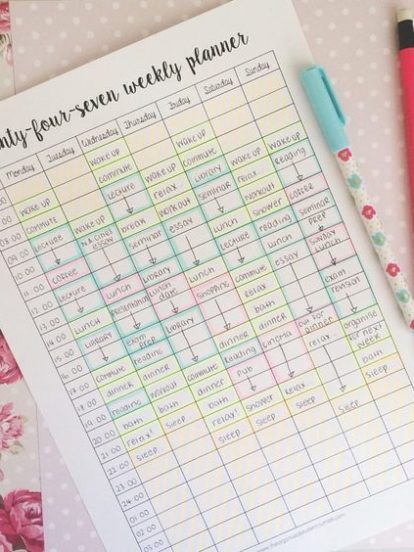 nty-four-seven weekly planner
Monday Tuesday Wednesday Thursday Friday Saturday Sunday
wake up
commute wake up commute
wake up lecture relax library wake up wake up
commute wake up workout seminar relax reading
lecture break essay workout
seminar lunch shower coffee
coffee library lecture reading seminar prep
lecture lunch lunch seminar
presentation lunch date shopping commute essay Sunday lunch
lunch library relax
library exam prep bath exam revision
reading dinner dinner
commute dinner commute reading cinema out for dinner organise for next week
dinner workout dinner pub relax
reading bath bath relax bath
bath sleep relax shower sleep relax
relax sleep sleep sleep
sleep
08:00
09:00
10:00
11:00
12:00
13:00
14:00
15:00
16:00
19:00
20:00
21:00
22:00
23:00
24:00
01:00
02:00
03:00